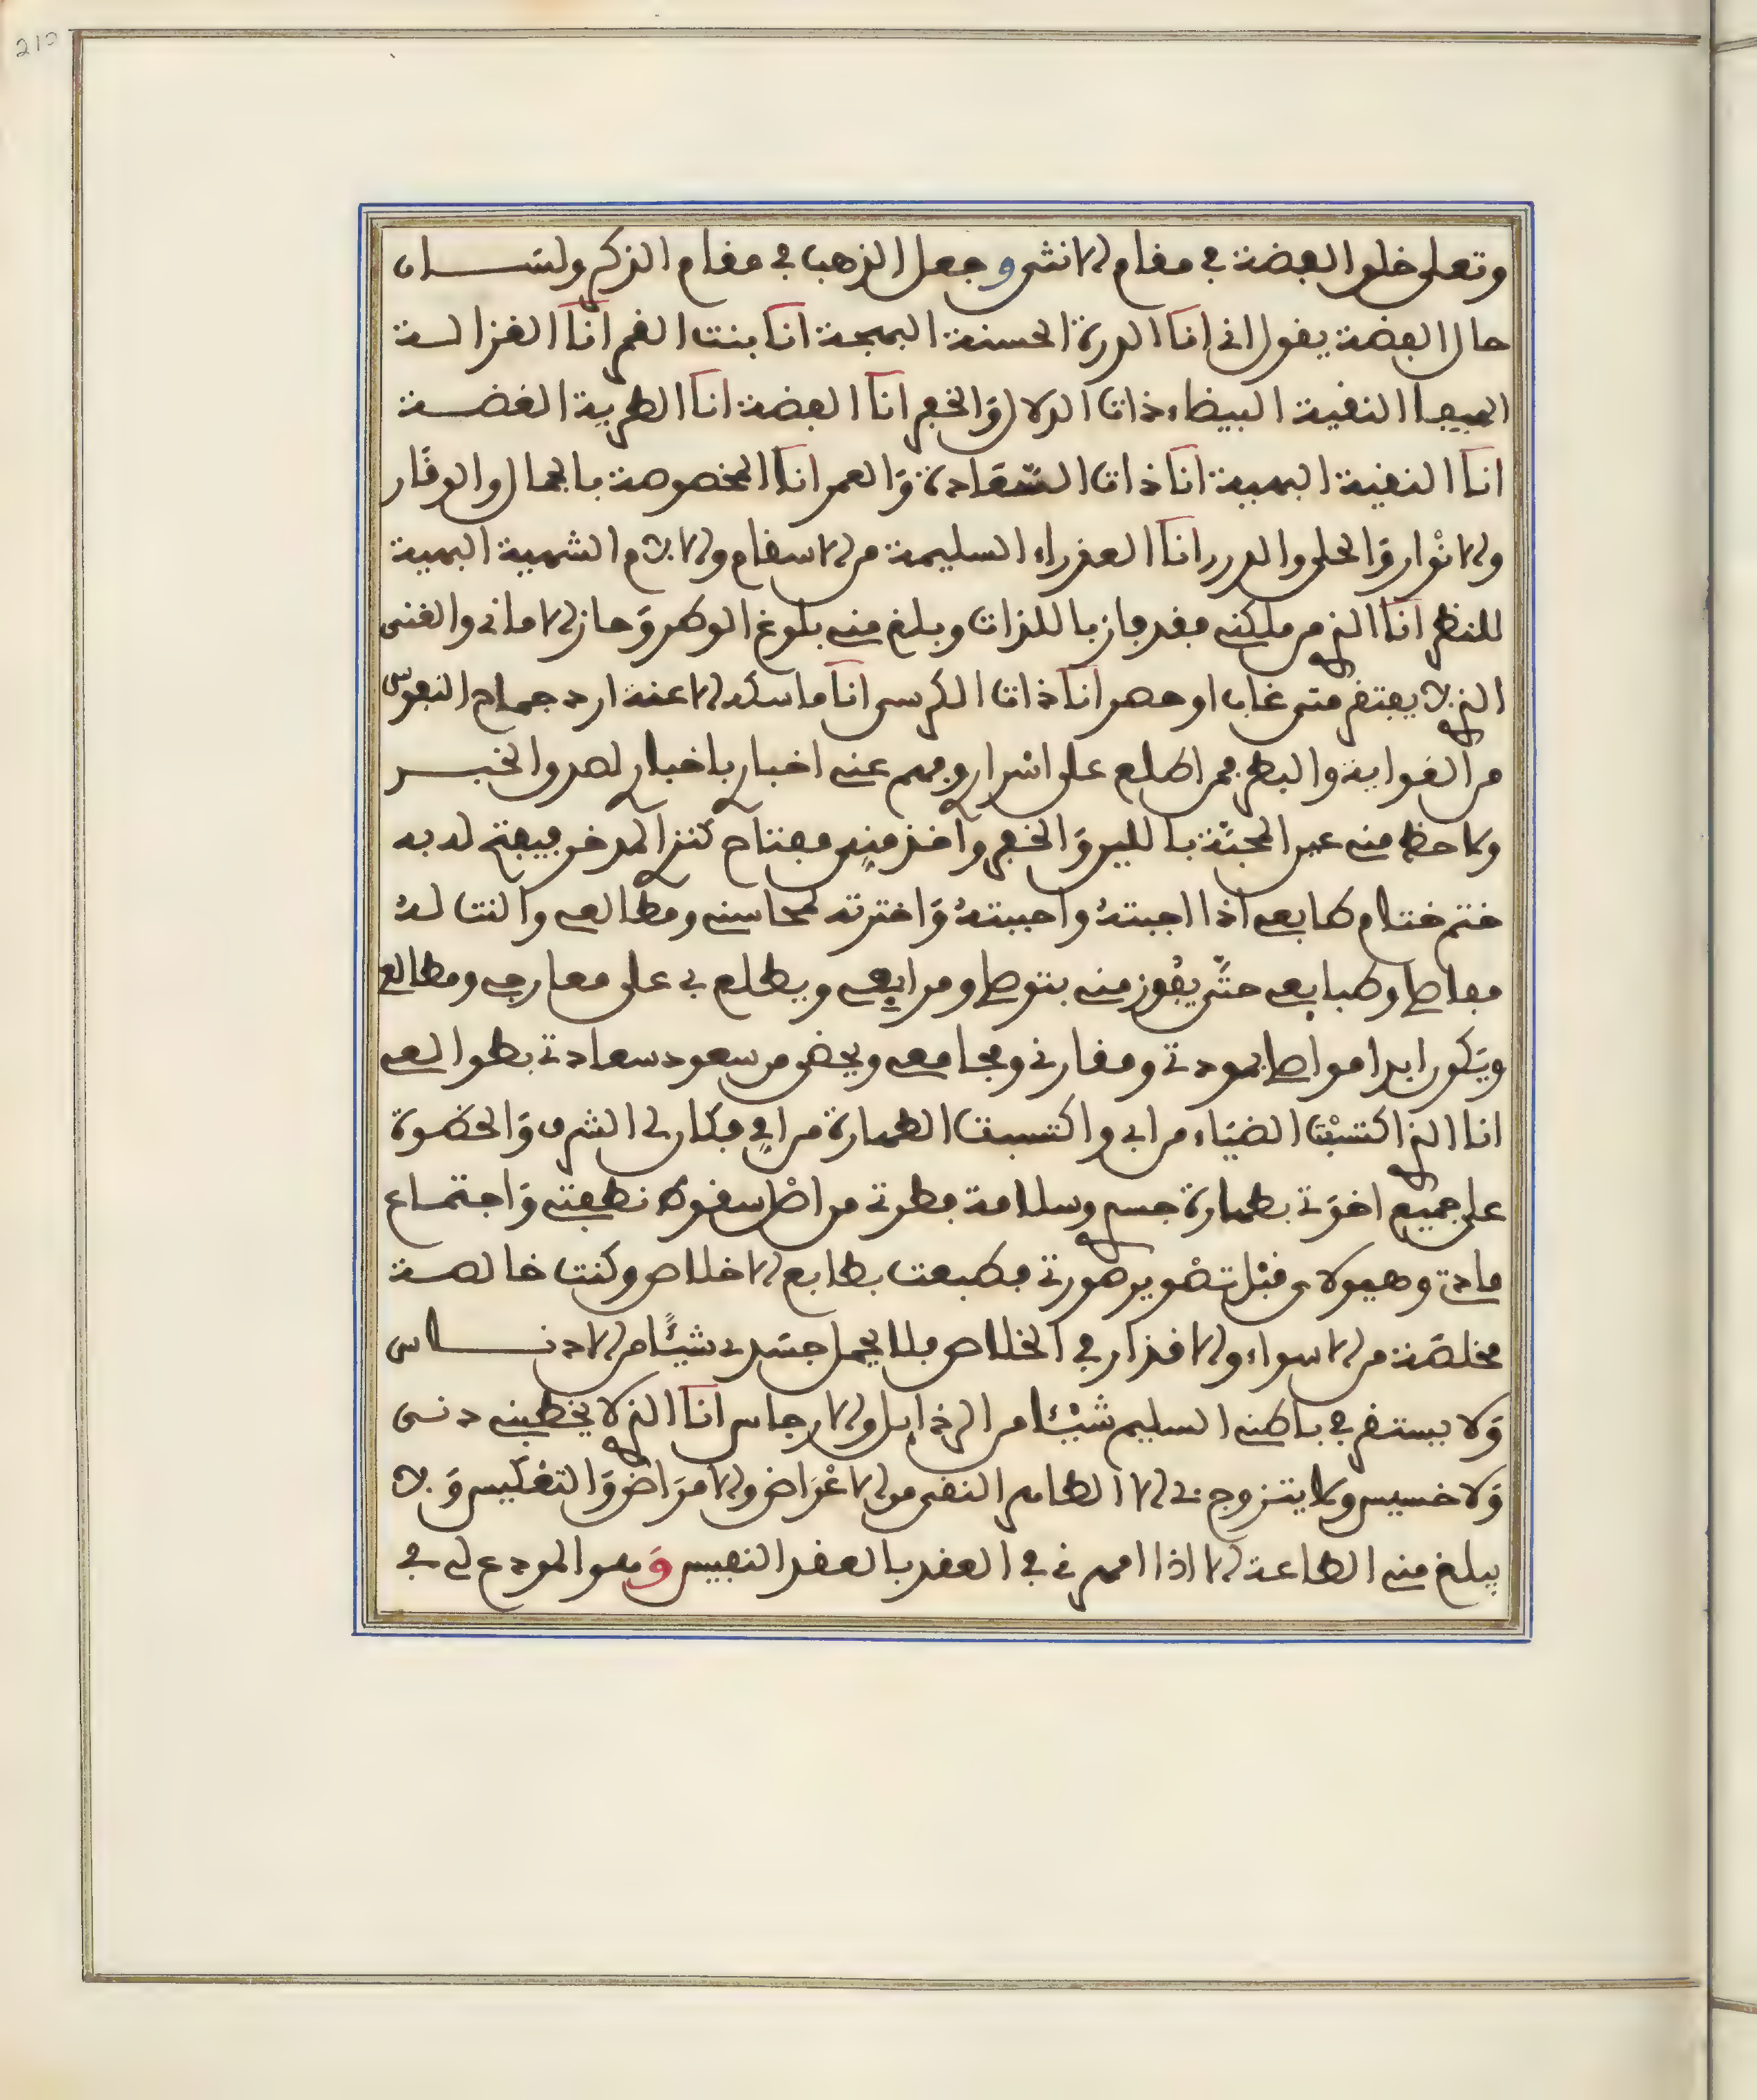 210
وتعلى خلق الفضة في مقام الانثى وجعل الذهب في مقام الذكر ولســان
حال الفضة يقول اني انا الدرة الحسنة البهجة انا بنت القمر انا الغزالـة
الهيفا النقية البيضاء ذات الدلال وَالخفر انا الفضة انا الطرية الغضـة
انا النقية البهية انا ذات السَّعَادة وَالعمر انا المخصوصة بالجمال والوقار
والانْوار وَالحلي والدرر انا العذراء السليمة من الاسقام والالام الشهية البهية
للنظر انا الذي من ملكني فقد فاز باللذات وبلغ مني بلوغ الوطر وَحاز الاماني والغنى
الذي لا يفتقر متى غاب او حضر انا ذات الكرسي انا ماسكة الاعنة ارد جماح النفوس
من الغواية والبطر فمن اطلع على اسْراري وفهم عني اخباري باخباري لصدق الخبـر
ولاحظ مني عين المحبَّة بالليل وَالفجر واخذ مني مفتاح كنزي المدخر فيفتح له به
ختم ختام طابعي اذا اجبتهُ واحببتهُ وَاخترته لمحاسني ومطالعي والنت لهُ
مفاصلي وطبايعي حتَّى يفُوز مني بتوصلي ومرابعي ويطلع بي على معارفي ومطالع
ويَكون ابدا مواصلي بمودتي ومقارني ومجامعي ويحضى من سعود سعادتي بطوالعي
انا الذي اكتسبْت الضيَاء من ابي واكتسبت الطهارة من امي فكان لي الشرف وَالحضوة
على جميع اخوَتي بطهارة جسمي وسلامة فطرتي من اصْل سقوط نطفتي وَاجتمـاع
مادتي وهيولاي قبْل تصْوير صورتي فطبعت بطابع الاخلاص وكنت خالصـة
مخلصَة من الاسواء والاقذار في الخلاص فلا يحمل جسَدي شيئًا من الادنــاس
وَلا يستقر في باطني السليم شيْئا من الرذايل والارجاس انا الذي لا يخطبني دنـي
وَلا خسيس ولا يتزوج بي الا الطاهر النقي من الاعْرَاض والامرَاض وَالتفليس وَ لا
يبلغ مني الطاعة الا اذا امهرني في العقد بالعقد النفيس وَهو المودع لي في